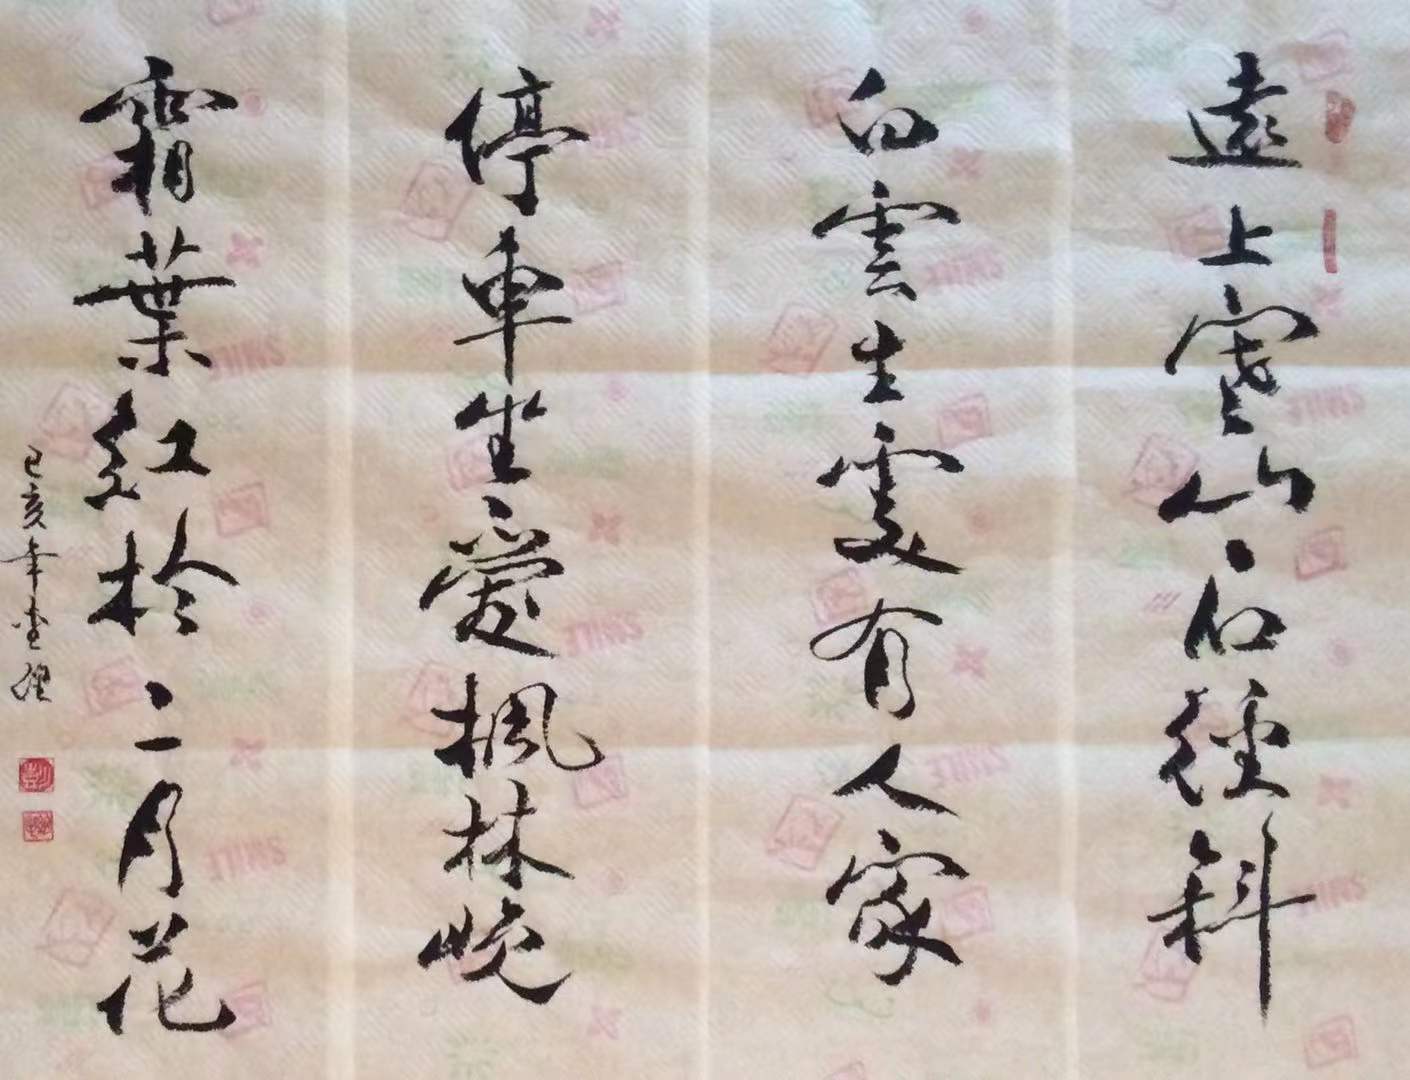 遠上寒山石徑斜
白雲生處有人家
停車坐愛楓林晚
霜葉紅於二月花
己亥年